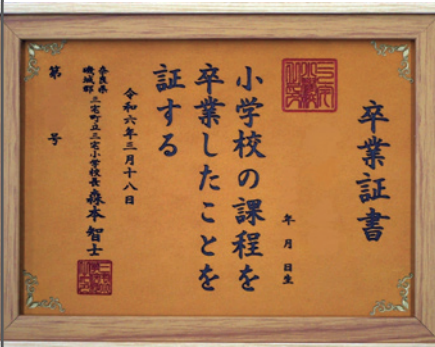 卒業証書
年 月 日生
小学校の課程を
卒業したことを
証する
令和六年三月十八日
奈良県
磯城郡
三宅町立三宅小学校長 森本智士
第 号